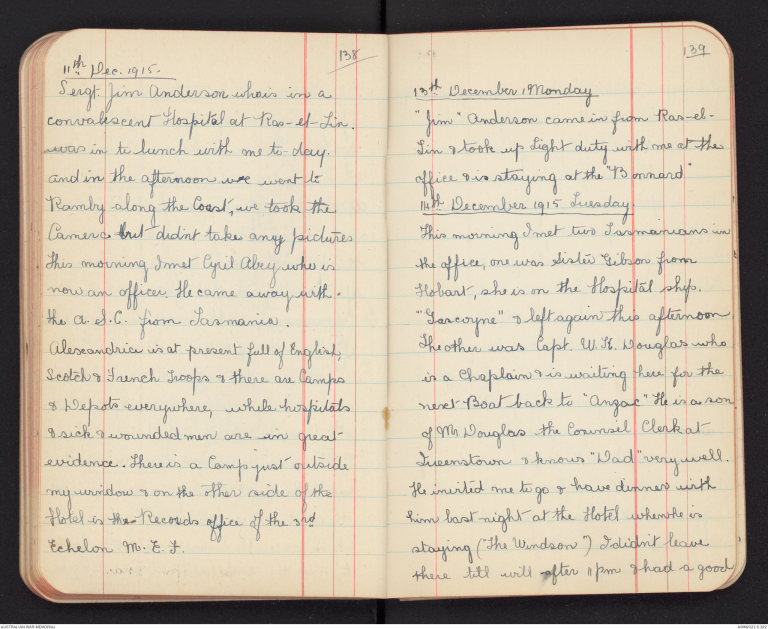 138
11th Dec. 1915.
Sergt. Jim Anderson who is in a
convalescent Hospital at Ras-el-Tin.
was in to lunch with me to-day.
and in the afternoon we went to
Ramby along the Coast, we took the
Camera but didnt take any pictures
This morning I met Cyril Abey who is
now an officer. He came away with
the A.S.C. from Tasmania.
Alexandria is at present full of English,
Scotch & French Troops & there are Camps
& Depots everywhere, while hospitals
& sick & wounded men are in great
evidence. There is a Camp just outside
my window & on the other side of the
Hotel is the Records office of the 3rd
Echelon M.E.F.
139
13th December Monday
"Jim" Anderson came in from Ras-el-
Tin & took up light duty with me at the
office & is staying at the "Bonnard"
14th December 1915 Tuesday.
This morning I met two Tasmanians in
the office, one was Sister Gibson from
Hobart, she is on the Hospital ship.
"Gascoyne" & left again this afternoon
The other was Capt. W.K. Douglas who
is a Chaplain & is waiting here for the
next Boat back to "Anzac" He is a son
of Mr Douglas the Counsil Clerk at
Queenstown & knows "Dad" very well.
He invited me to go & have dinner with
him last night at the Hotel where he is
staying ("The Windsor") I didn't leave
there till well after 11pm & had a good
AUSTRALIAN WAR MEMORIAL